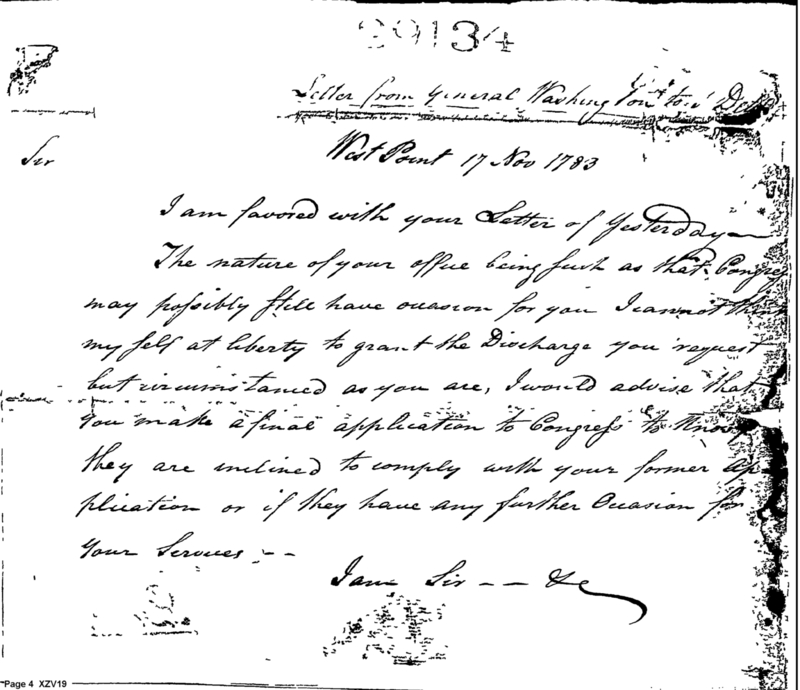 29134
Letter from General Washington to
West Point 17 Nov 1783
Sir
I am favored with your Letter of Yesterday—
The nature of your office being such as that Congress
may possibly still have occasion for you I cannot think
my self at liberty to grant the Discharge you request
but circumstanced as you are, I would advise that
you make a final application to Congress to know
they are inclined to comply with your former ap-
plication or if they have any further Occasion for
your Services - -
I am Sir - - &c
Page 4 XZV19